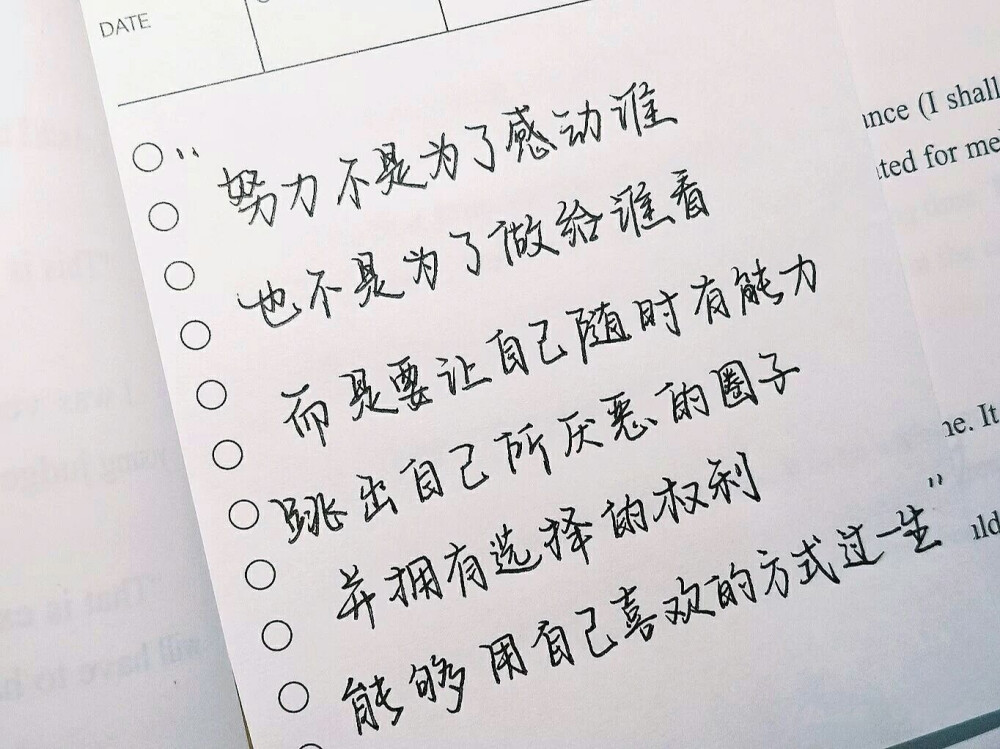 DATE
"努力不是为了感动谁
也不是为了做给谁看
而是要让自己随时有能力
跳出自己所厌恶的圈子
并拥有选择的权利
能够用自己喜欢的方式过一生"
ance (I shall
ated for me
ne. It
uld
"This is
I was ve
"That is ex
will have to h